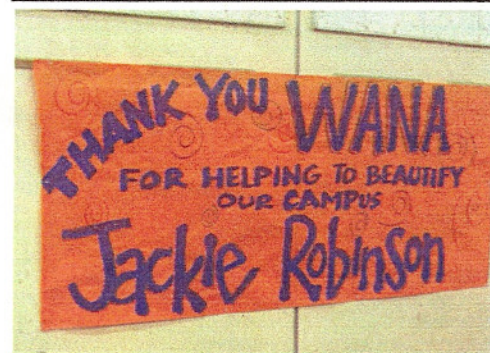 THANK YOU WANA
FOR HELPING TO BEAUTIFY
OUR CAMPUS
Jackie Robinson